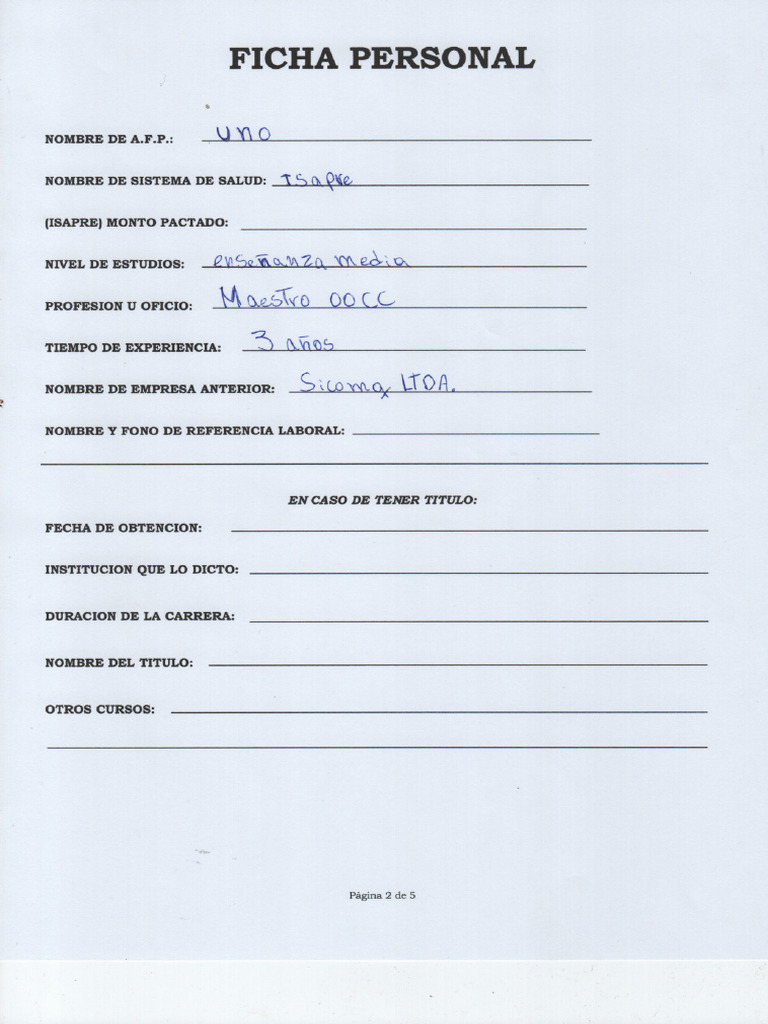 FICHA PERSONAL
NOMBRE DE A.F.P.: uno
NOMBRE DE SISTEMA DE SALUD: Isapre
(ISAPRE) MONTO PACTADO:
NIVEL DE ESTUDIOS: enseñanza media
PROFESION U OFICIO: Maestro OOCC
TIEMPO DE EXPERIENCIA: 3 años
NOMBRE DE EMPRESA ANTERIOR: Sicomax LTDA.
NOMBRE Y FONO DE REFERENCIA LABORAL:
EN CASO DE TENER TITULO:
FECHA DE OBTENCION:
INSTITUCION QUE LO DICTO:
DURACION DE LA CARRERA:
NOMBRE DEL TITULO:
OTROS CURSOS:
Página 2 de 5